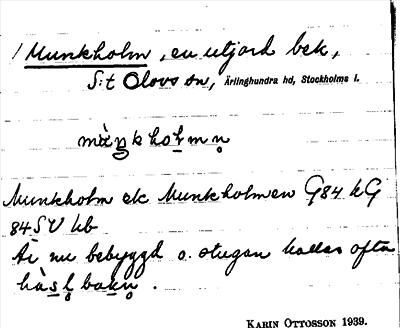 / Munkholm, en utjord bek,
S:t Olovs sn, Ärlinghundra hd, Stockholms l.
Munkholm ek Munkholmen G84 kG
84 SV kb
Är nu bebyggd o. stugan kallas ofta
KARIN OTTOSSON 1939.